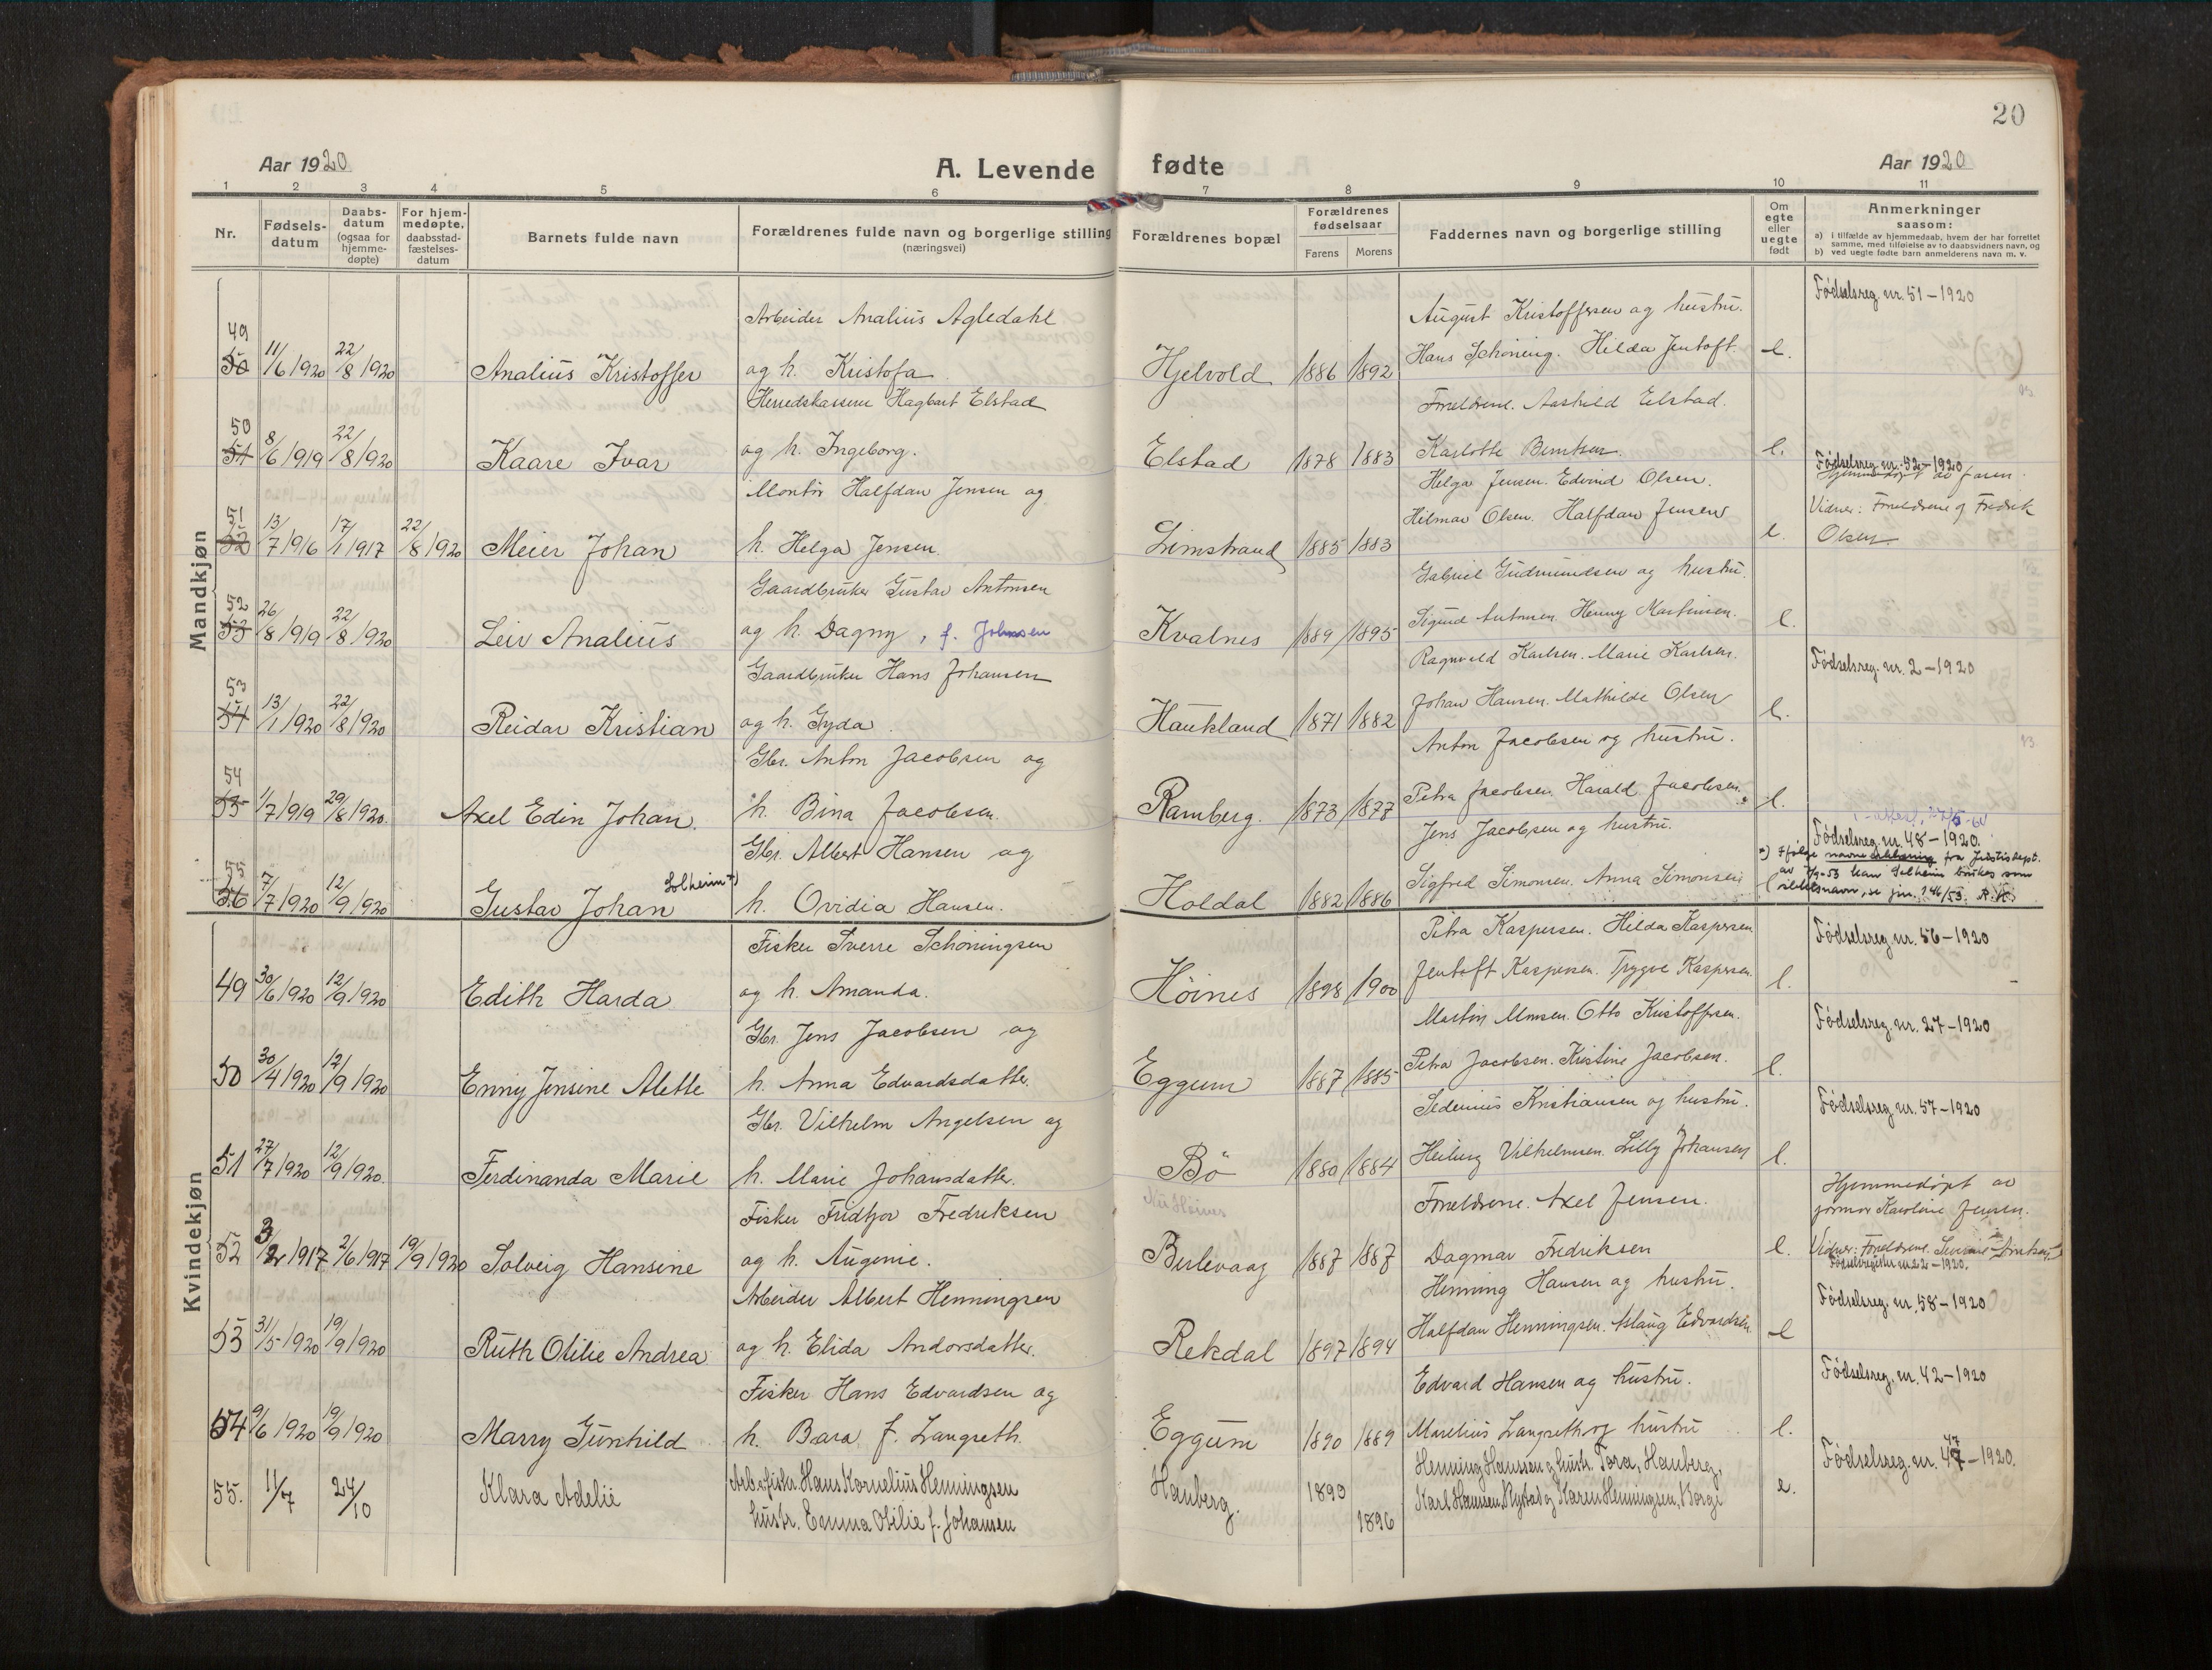 20
Aar 1920
A. Levende fødte
Aar 1920
1 2 3 4 5 6 7 8 9 10 11
Nr.
Fødsels-
datum
Daabs-
datum
(ogsaa for
hjemme-
døpte)
For hjem-
medøpte,
daabsstad-
fæstelses-
datum
Barnets fulde navn
Forældrenes fulde navn og borgerlige stilling
(næringsvei)
Forældrenes bopæl
Forældrenes
fødselsaar
Farens Morens
Faddernes navn og borgerlige stilling
Om
egte
eller
uegte
født
Anmerkninger
saasom:
a) i tilfælde av hjemmedaab, hvem der har forrettet
samme, med tilføielse av to daabsvidners navn, og
b) ved uegte fødte barn anmelderens navn m. v.
Mandkjøn
Arbeider Analius Agledahl August Kristoffersen og hustru. Fødselsreg. nr. 51-1920
49
50 11/6 1920 22/8 1920 Analius Kristoffer og h. Kristofa Hjelvold 1886 1892 Hans Schöning. Hilda Jentoft e.
Herredskasserer Hagbart Elstad Foreldrene. Aashild Elstad.
50
51 8/6 1919 22/8 1920 Kaare Ivar og h. Ingeborg. Elstad 1878 1883 Karlotte Berntsen. e.
Fødselsreg. nr. 52-1920
Montör Halfdan Jensen og Helga Jensen. Edvind Olsen. Hjemmedöpt av faren.
51
52 13/7 1916 17/1 1917 22/8 1920 Meier Johan h. Helga Jensen. Limstrand 1885 1883 Hilmar Olsen. Halfdan Jensen e. Vidner: Foreldrene og Fredrik
Olsen
Gaardbruker Gustav Antonsen Gabriel Gudmundsen og hustru.
52
53 26/8 1919 22/8 1920 Leiv Analius og h. Dagny, f. Johnsen Kvalnes 1889 1895 Sigurd Antonsen. Henny Martinsen. e.
Gaardbruker Hans Johansen Ragnvald Karlsen. Marie Karlsen. Fødselsreg. nr. 2-1920
53
54 13/1 1920 22/8 1920 Reidar Kristian og h. Gyda Haukland 1871 1882 Johan Hansen. Mathilde Olsen e.
Gbr. Anton Jacobsen og Anton Jacobsen og hustru.
54
55 1/7 1919 29/8 1920. Axel Edin Johan. h. Bina Jacobsen. Ramberg. 1873 1877 Petra Jacobsen. Harald Jacobsen. e.
Gbr. Albert Hansen og Jens Jacobsen og hustru. Fødselsreg. nr. 48-1920.
55
56 7/7 1920 12/9 1920 Gustav Johan Solheim *) h. Ovidia Hansen. Holdal 1882 1886 Sigfred Simonsen. Anna Simonsen e
*) Ifølge navneerklæring fra Justisdept.
av 7/9-53 kan Solheim brukes som
slektsnavn, se jnr. 246/53.
Kvindekjøn
Fisker Sverre Schöningsen Petra Kaspersen. Hilda Kaspersen Fødselsreg. nr. 56-1920
49 30/6 1920 12/9 1920 Edith Harda og h. Amanda. Höines 1898 1900 Jentoft Kaspersen. Trygve Kaspersen. e.
Gbr. Jens Jacobsen og Martin Monsen. Otto Kristoffersen. Fødselsreg. nr. 27-1920
50 30/4 1920 12/9 1920 Enny Jensine Alette h. Anna Edvardsdatter. Eggum 1887 1885 Petra Jacobsen. Kristine Jacobsen. e.
Gbr. Vilhelm Angelsen og Sedenius Kristiansen og hustru. Fødselsreg. nr. 57-1920
51 27/7 1920 12/9 1920. Ferdinanda Marie h. Marie Johansdatter. Bö 1880 1884 Heiberg Vilhelmsen. Lilly Johansen e.
Fisker Fridtjov Fredriksen Foreldrene. Axel Jensen. Hjemmedöpt av
52 3/2 1917 2/6 1917 19/9 1920 Solveig Hansine og h. Augenie. Berlevaag 1887 1887 Dagmar Fredriksen e. jormor Karoline Jensen.
Vidner: Foreldrene.
Fødselsregister nr. 22-1920.
Arbeider Albert Henningsen Henning Hansen og hustru. Fødselsreg. nr. 58-1920
53 31/5 1920 19/9 1920 Ruth Otilie Andrea og h. Elida Andorsdatter. Rekdal 1897 1894 Halfdan Henningsen. Aslaug Edvardsen. e
Fisker Hans Edvardsen og Edvard Hansen og hustru. Fødselsreg. nr. 42-1920
54 9/6 1920 19/9 1920 Marry Gunhild h. Bara f. Langseth. Eggum 1890 1889 Marelius Langseth og hustru e.
55. 11/7 24/10 Klara Adelie Arb. & fisker. Hans Kornelius Henningsen Hauberg. 1890 Henning Hanssen og hustr. Tora, Hauberg, e. Fødselsreg. nr. 47-1920.
hustr. Emma Otilie f. Johansen 1896 Karl Hansen, Rystad og Karen Henningsen, Borge